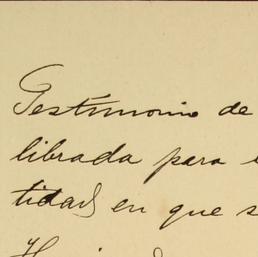 Testimonio de
librada para
tidad en que s